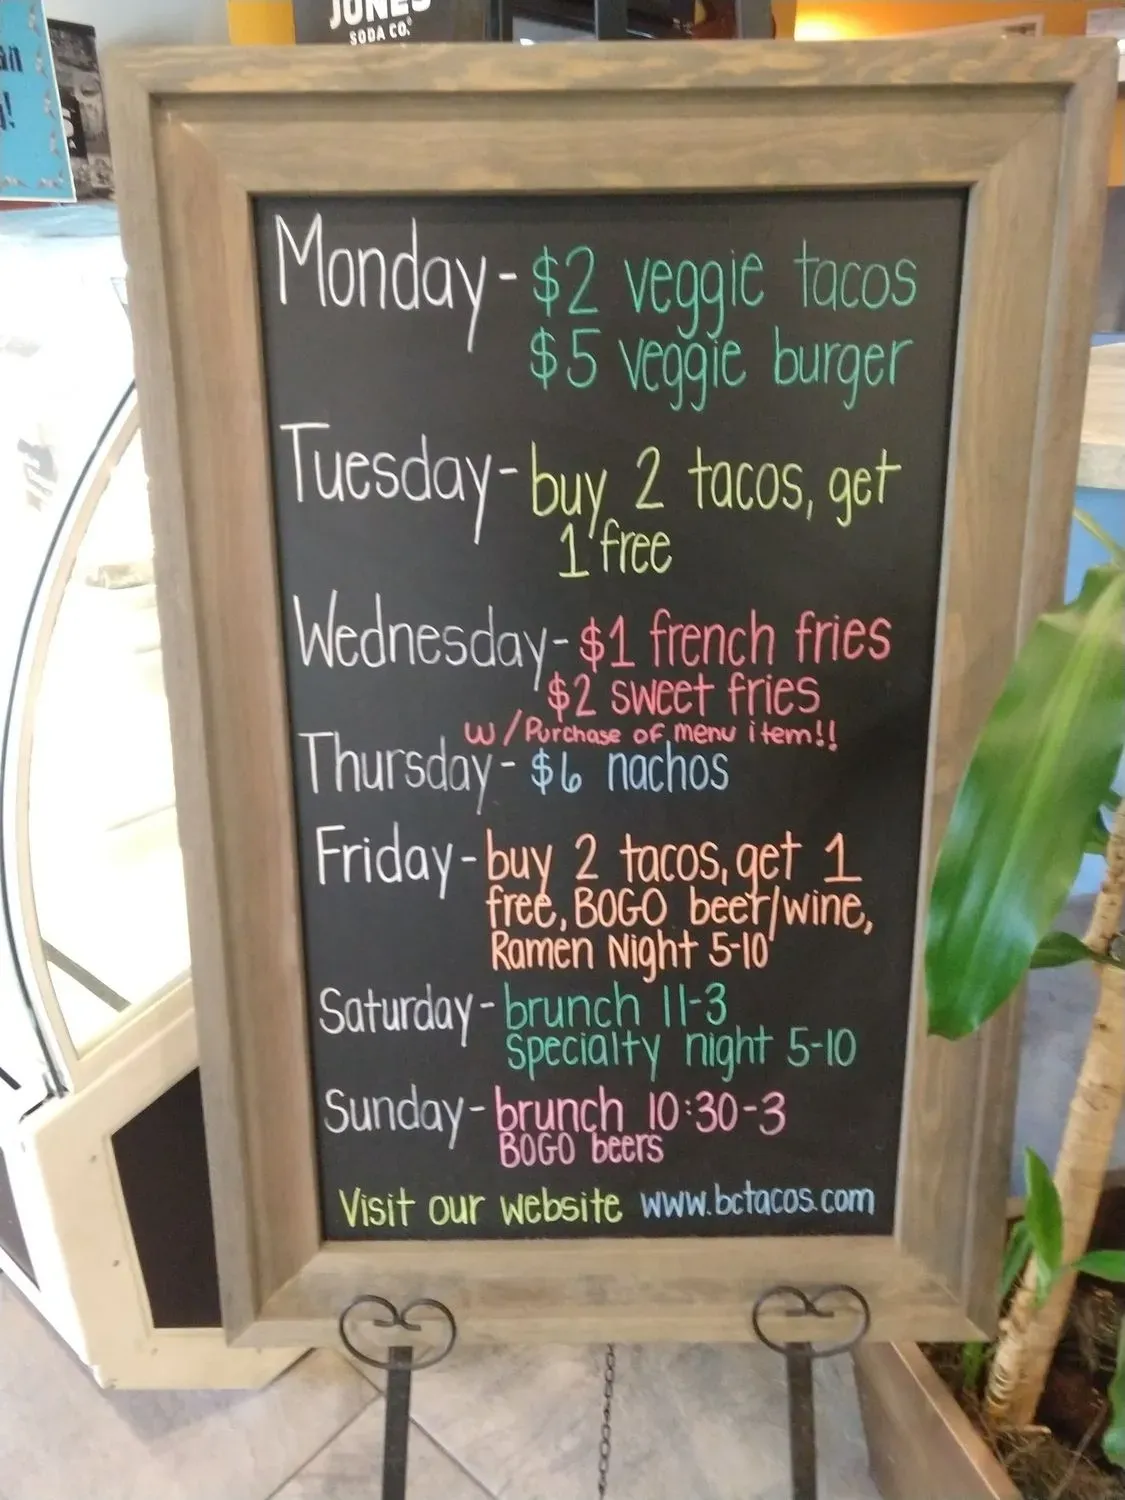 JONES
SODA CO.
an
!
Monday - $2 veggie tacos
$5 veggie burger
Tuesday - buy 2 tacos, get
1 free
Wednesday - $1 french fries
$2 sweet fries
w/Purchase of menu item!!
Thursday - $6 nachos
Friday - buy 2 tacos, get 1
free, BOGO beer/wine,
Ramen Night 5-10
Saturday - brunch 11-3
specialty night 5-10
Sunday - brunch 10:30-3
BOGO beers
Visit our website www.bctacos.com